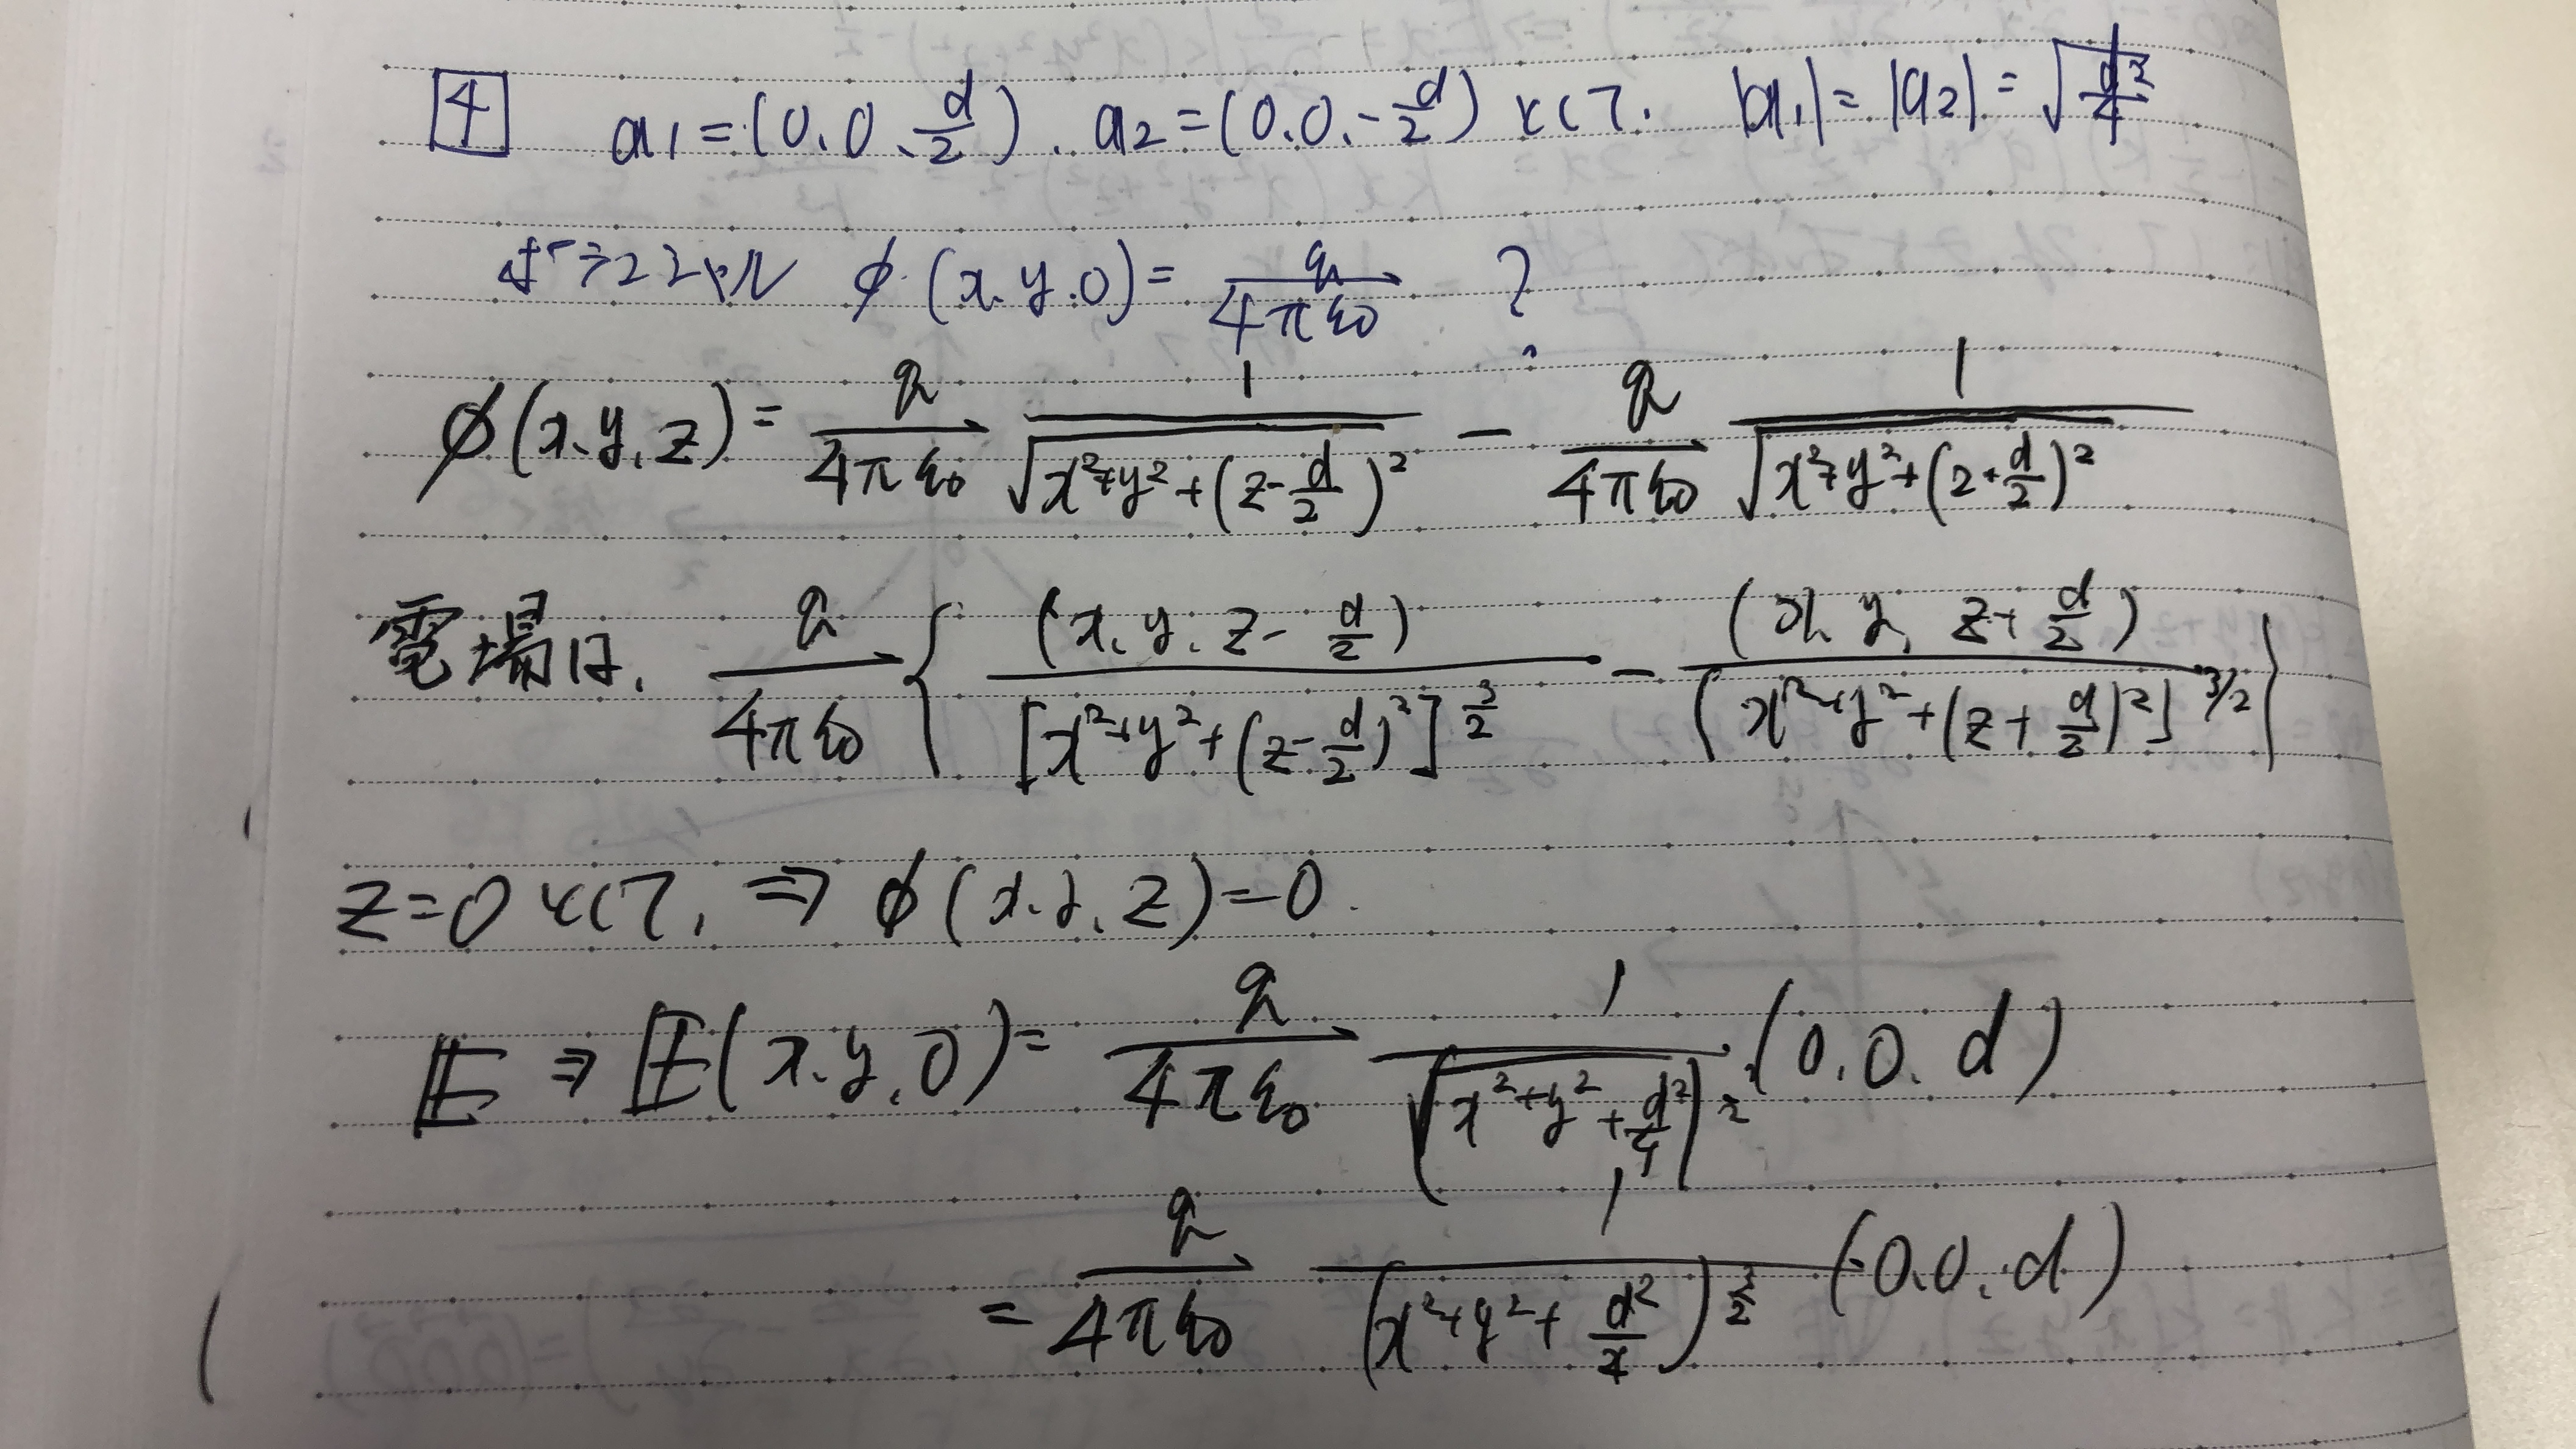 4 a₁=(0,0,d/2), a₂=(0,0,-d/2) として, |a₁|=|a₂|=√(d²/4)
ポテンシャル φ(x,y,0)= q/(4πε₀) ?
φ(x,y,z)= q/(4πε₀) 1/√(x²+y²+(z-d/2)²) - q/(4πε₀) 1/√(x²+y²+(z+d/2)²)
電場は, q/(4πε₀) { (x,y,z-d/2)/[x²+y²+(z-d/2)²]^(3/2) - (x,y,z+d/2)/[x²+y²+(z+d/2)²]^(3/2) }
z=0 として, ⇒ φ(x,y,z)=0.
E ⇒ E(x,y,0)= q/(4πε₀) 1/√(x²+y²+d²/4) (0,0,d)
= q/(4πε₀) 1/(x²+y²+d²/4)^(3/2) (0,0,d)